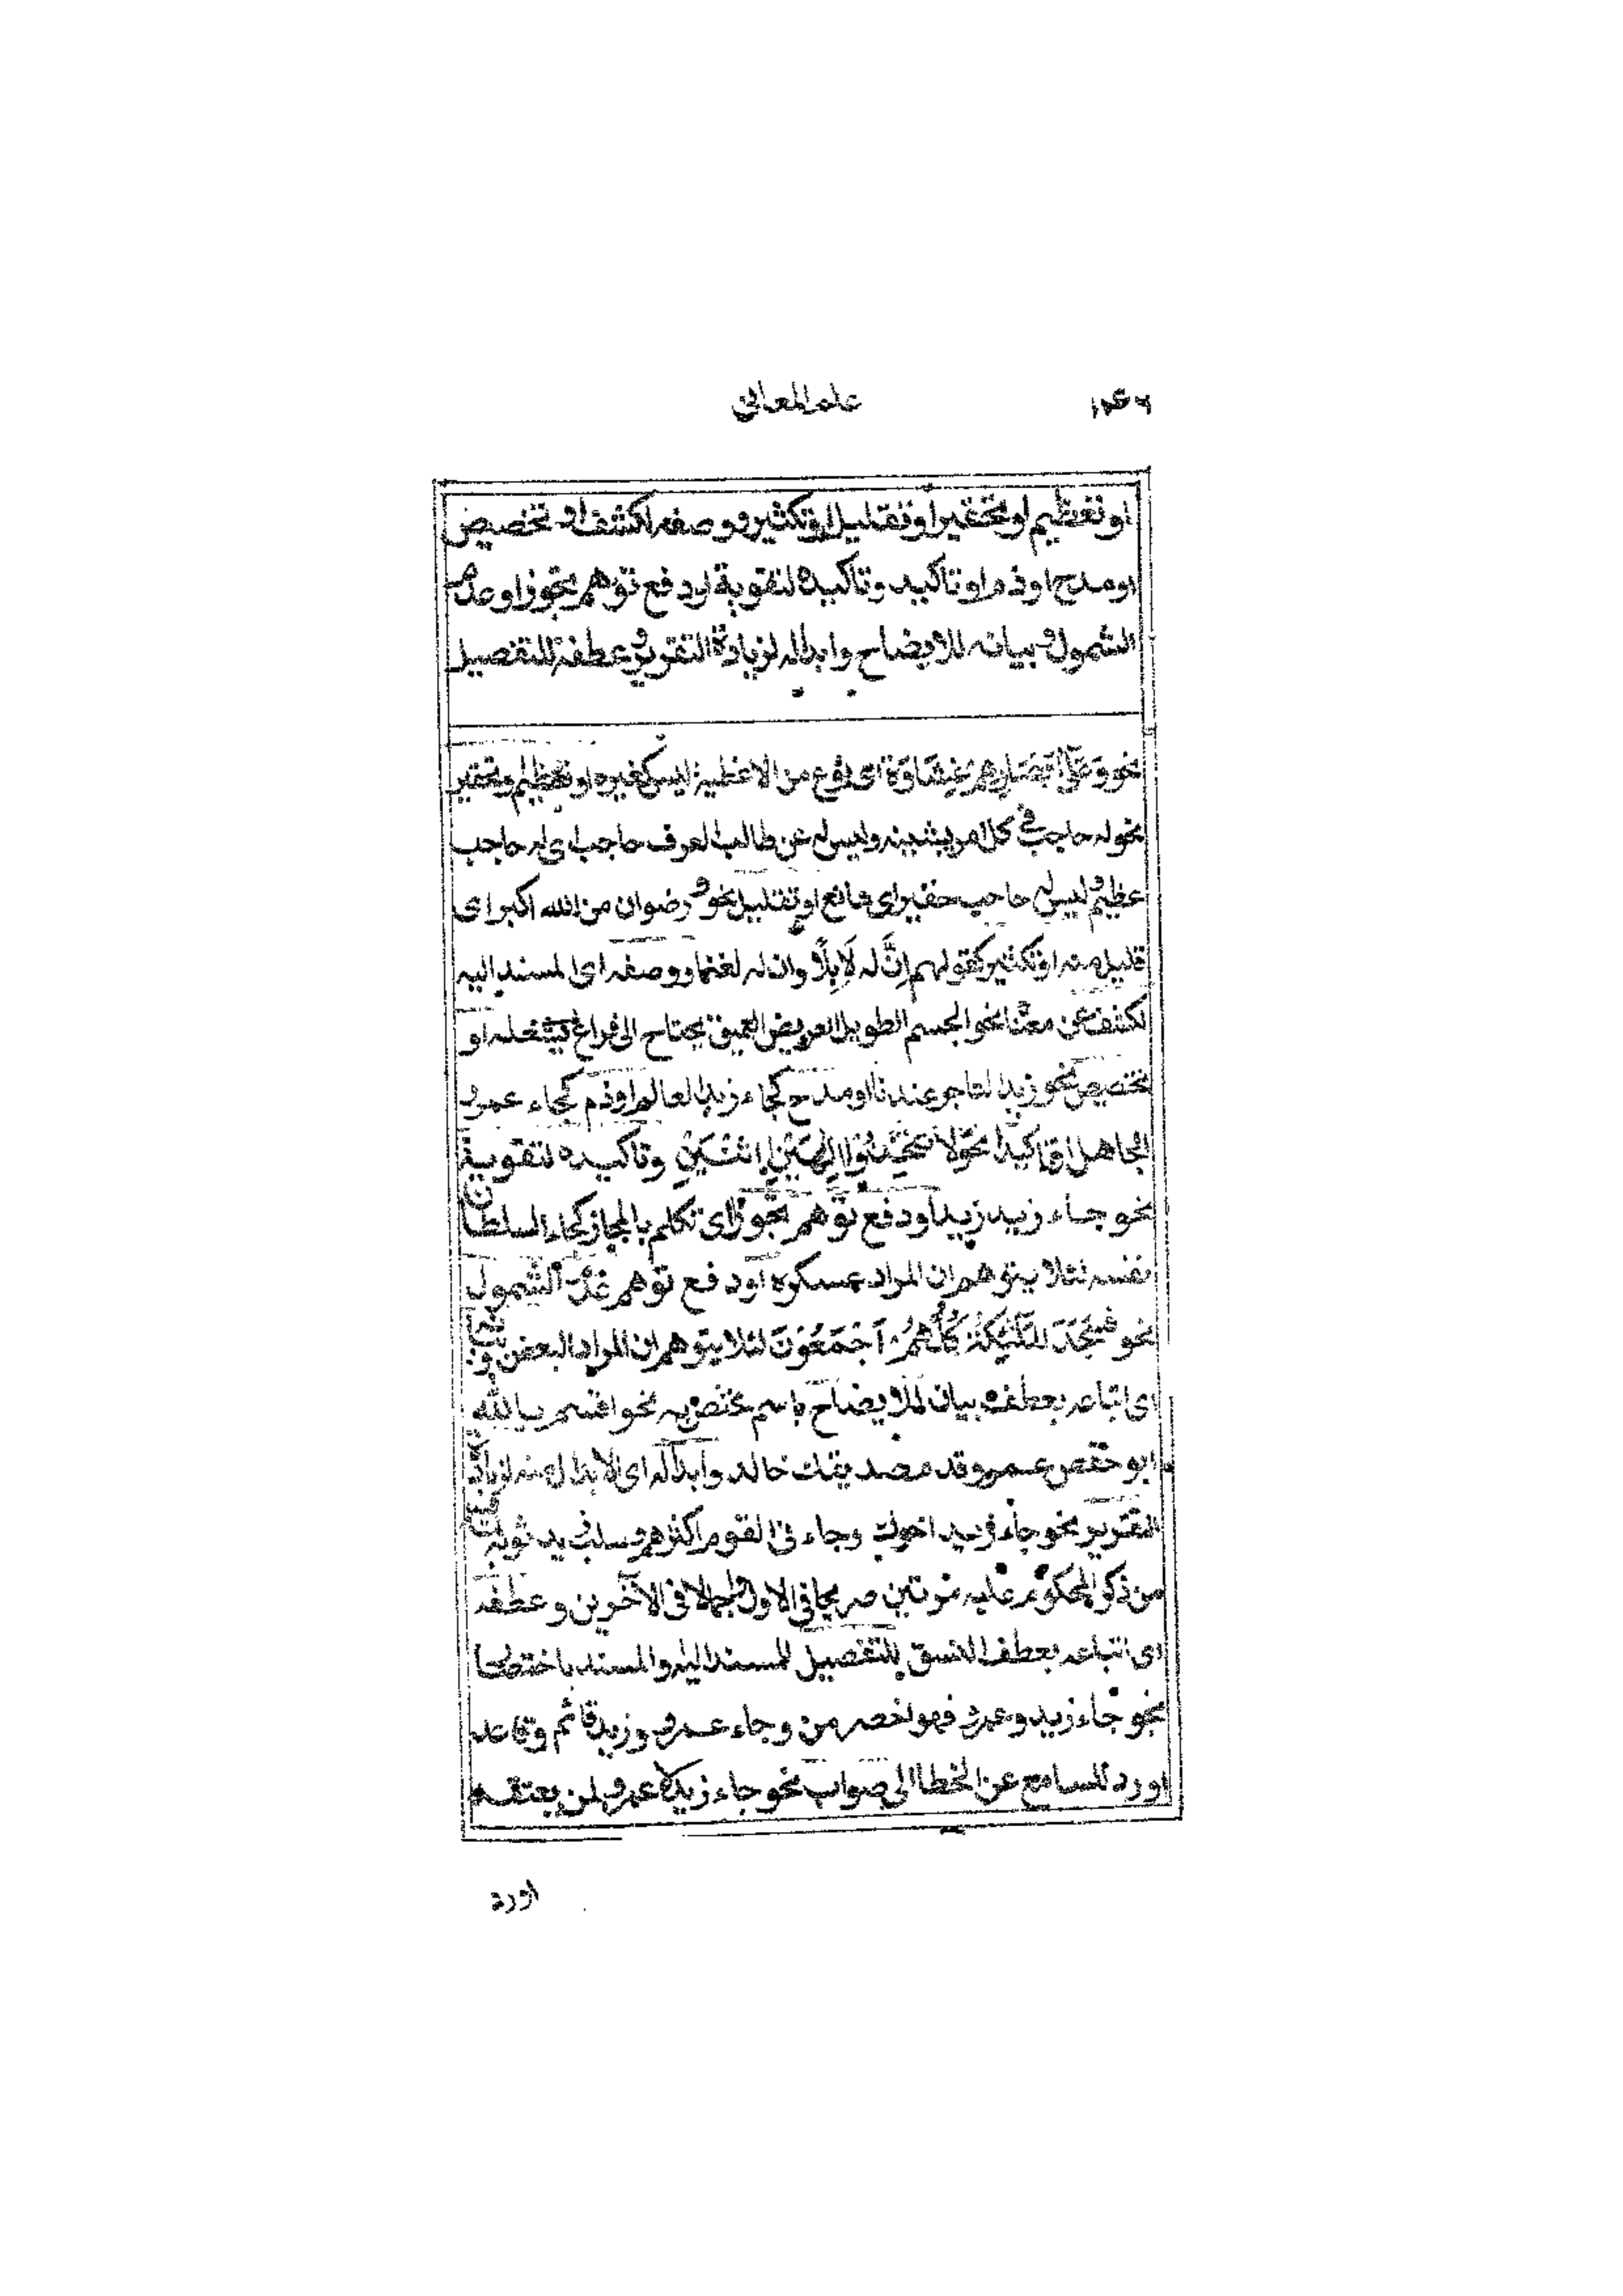 علم المعانى
او تعظيم او تحقير او تقليل او تكثير ووصفه لكشف او تخصيص
او مدح او ذم او تاكيد وتاكيده لتقوية او دفع توهم تجوز او عدم
الشمول وبيانه للايضاح وابداله لزيادة التقرير وعطفه للتفصيل
نحو وَعَلَى أَبْصَارِهِمْ غِشَاوَة اى نوع من الاغطية ليس كغيره او تعظيم وتحقير
نحو له حاجب فى كل امر يشينه وليس له عن طالب العرف حاجب اى له حاجب
عظيم وليس له حاجب حقير اى مانع او تقليل نحو ورضوان من الله اكبر اى
قليل منه او تكثير كقولهم إنَّ له لَإِبِلًا وان له لغنما ووصفه اى المسند اليه
لكشف عن معناه نحو الجسم الطويل العريض العميق يحتاج الى فراغ يشغله او
تخصيص نحو زيد التاجر عندنا او مدح كجاء زيد العالم او ذم كجاء عمرو
الجاهل او تاكيد نحو لَا تَتَّخِذُوا إِلَهَيْنِ اثْنَيْنِ وتاكيده لتقوية
نحو جاء زيد زيد او دفع توهم تجوز اى تكلم بالمجاز كجاء السلطان
نفسه لئلا يتوهم ان المراد عسكره او دفع توهم عدم الشمول
نحو فَسَجَدَ الْمَلٰئِكَةُ كُلُّهُمْ أَجْمَعُوْنَ لئلا يتوهم ان المراد البعض وبيانه
اى اتباعه بعطف بيان للايضاح باسم مختص به نحو اقسم بالله
ابو حفص عمر وقدم صديقك خالد وابداله اى الابدال منه لزيادة
التقرير نحو جاءنى زيد اخوك وجاءنى القوم اكثرهم وسلب زيد ثوبه
من ذكر المحكوم عليه مرتين صريحا فى الاول واجمالا فى الآخرين وعطفه
اى اتباعه بعطف النسق للتفصيل للمسند اليه والمسند باختصار
نحو جاء زيد وعمرو فهو اخصر من وجاء عمرو وزيد قائم وقاعد
او رد للسامع عن الخطا الى صواب نحو جاء زيد لا عمرو لمن يعتقد
اورد